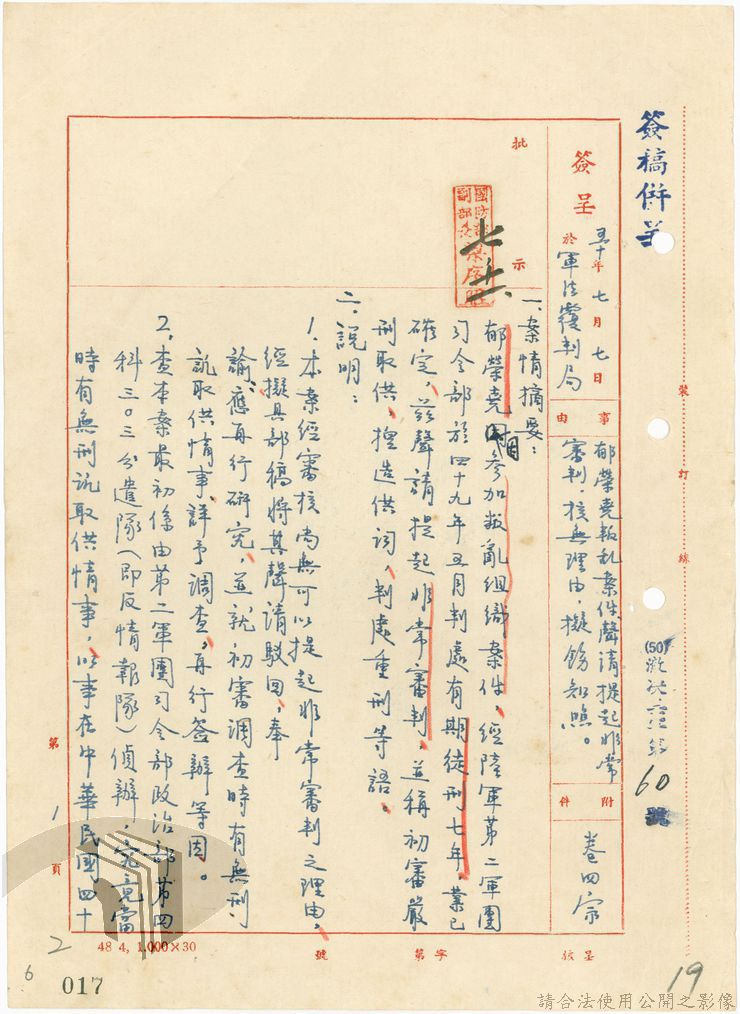 簽稿併呈
裝
訂
線
(50)
60
號
簽呈
五十年七月七日
於軍法覆判局
事由
郁榮堯叛乱案件聲請提起非常
審判，核無理由，擬飭知照。
附件
卷四宗
批示
國防部
副部長
一、案情摘要：
郁榮堯因參加叛亂組織案件，經陸軍第二軍團
司令部於四十九年五月判處有期徒刑七年，業已
確定，茲聲請提起非常審判，並稱初審嚴
刑取供，捏造供詞，判處重刑等語。
二、說明：
1.本案經審核尚無可以提起非常審判之理由，
經擬具部稿將其聲請駁回，奉
諭：應再行研究，並就初審調查時有無刑
訊取供情事，詳予調查，再行簽辦等因。
2.查本案最初係由第二軍團司令部政治部第四
科三〇三分遣隊（即反情報隊）偵辦，究竟當
時有無刑訊取供情事，以事在中華民國四十
第1頁
呈核
字第
號
48 4, 1.000×30
2
6
017
19
請合法使用公開之影像